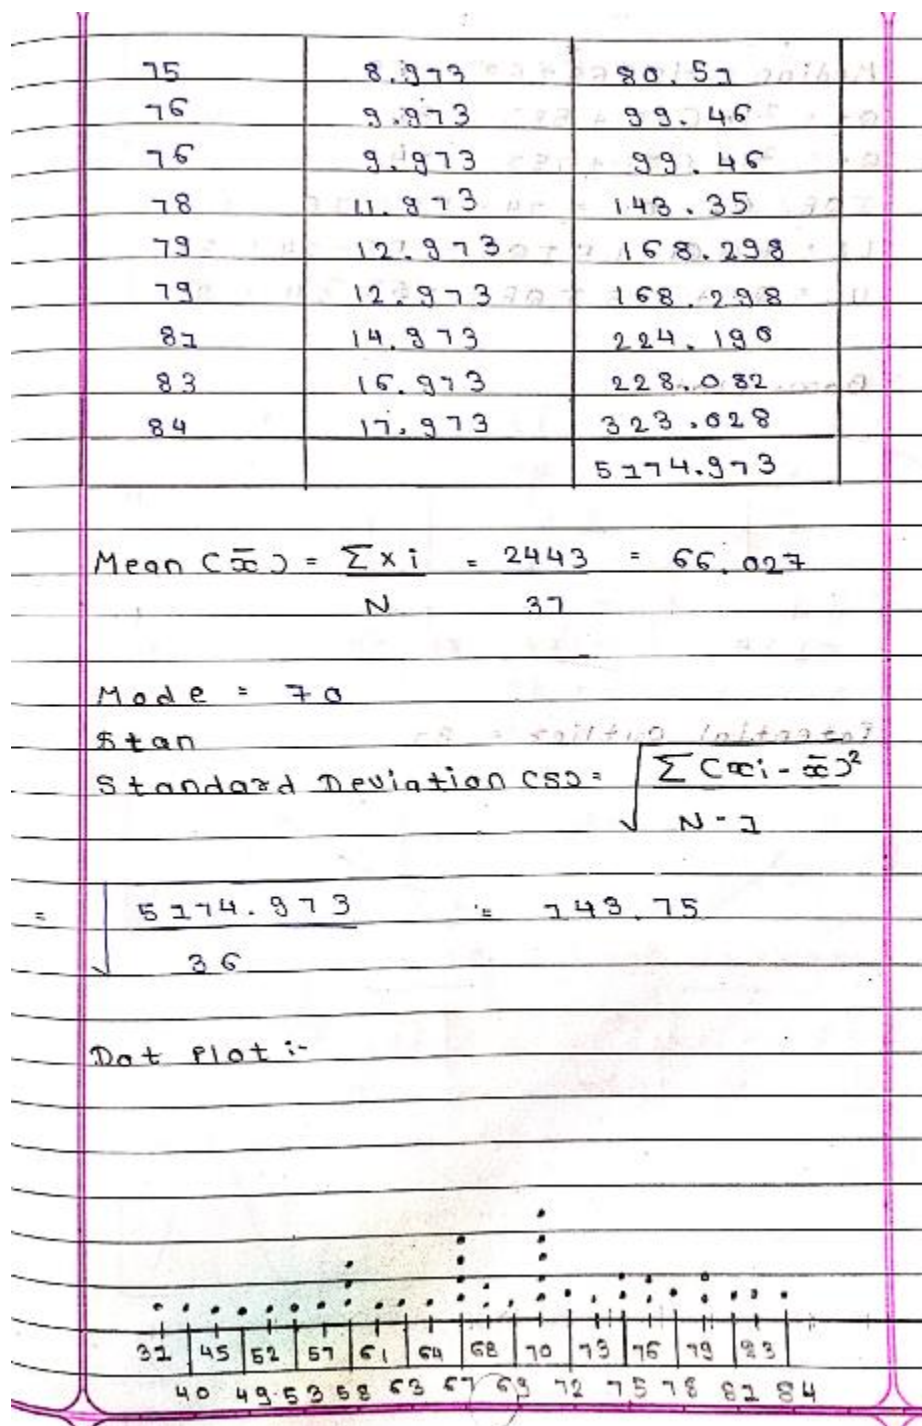 75 8.973 80.51
76 9.973 99.46
76 9.973 99.46
78 11.973 143.35
79 12.973 168.298
79 12.973 168.298
81 14.973 224.190
83 16.973 228.082
84 17.973 323.028
5174.973
Mean (x̄) = Σxi = 2443 = 66.027
N 37
Mode = 70
Stan
Standard Deviation (SD) = √ Σ(xi - x̄)²
N - 1
= √ 5174.973 = 143.75
36
Dot Plot :-
31 45 52 57 61 64 68 70 73 76 79 83
40 49.5 53 58 63 67 69 72 75 78 81 84